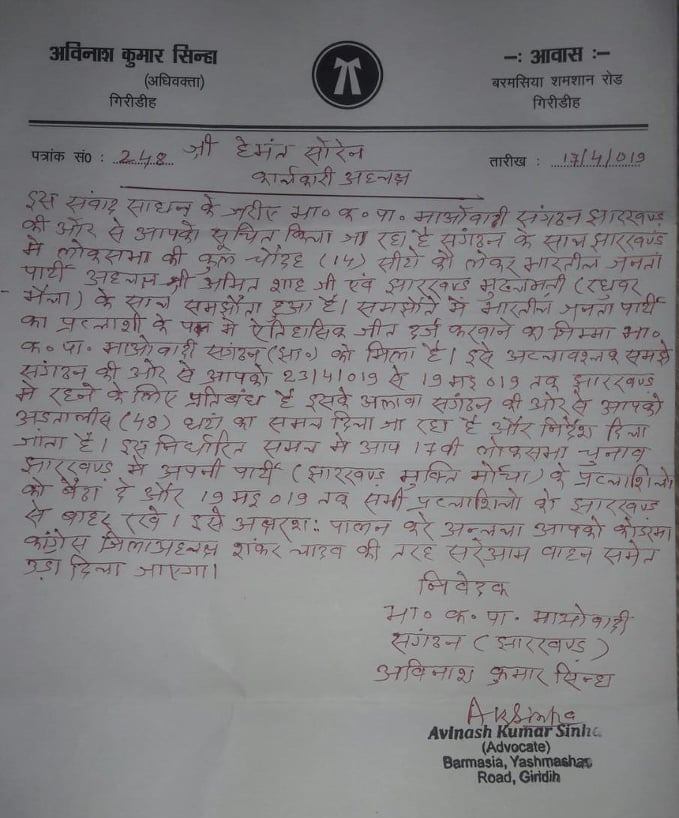 अविनाश कुमार सिन्हा
(अधिवक्ता)
गिरीडीह
-: आवास :-
बरमसिया शमशान रोड
गिरीडीह
पत्रांक सं० : 248
श्री हेमंत सोरेन
कार्यकारी अध्यक्ष
तारीख : 17/4/019
इस संवाद साधन के जरीए भा० क० पा० माओवादी संगठन झारखण्ड
की ओर से आपको सूचित किया जा रहा है संगठन के साथ झारखण्ड
मे लोकसभा की कुल चौदह (14) सीटो को लेकर भारतीय जनता
पार्टी अध्यक्ष श्री अमित शाह जी एवं झारखण्ड मुख्यमंत्री (रघुवर
मैला) के साथ समझौता हुआ है। समझौते मे भारतीय जनता पार्टी
का प्रत्याशी के पक्ष मे ऐतिहासिक जीत दर्ज करवाने का जिम्मा भा०
क० पा० माओवादी संगठन (झा०) को मिला है। इसे अत्यावश्यक समझे
संगठन की ओर से आपको 23/4/019 से 19 मइ 019 तक झारखण्ड
मे रहने के लिए प्रतिबंध है इसके अलावा संगठन की ओर से आपको
अड़तालीस (48) घंटा का समय दिया जा रहा है और निर्देश दिया
जाता है। इस निर्धारित समय मे आप 17वी लोकसभा चुनाव
झारखण्ड मे अपनी पार्टी (झारखण्ड मुक्ति मोर्चा) के प्रत्याशियो
को बैठा दे और 19 मइ 019 तक सभी प्रत्याशियो को झारखण्ड
से बाहर रखे। इसे अक्षरशः पालन करे अन्यथा आपको कोडरमा
कांग्रेस जिला अध्यक्ष शंकर यादव की तरह सरेआम वाहन समेत
उड़ा दिया जाएगा।
निवेदक
भा० क० पा० माओवादी
संगठन (झारखण्ड)
अविनाश कुमार सिन्हा
AKSinha
Avinash Kumar Sinha
(Advocate)
Barmasia, Yashmashan
Road, Giridih